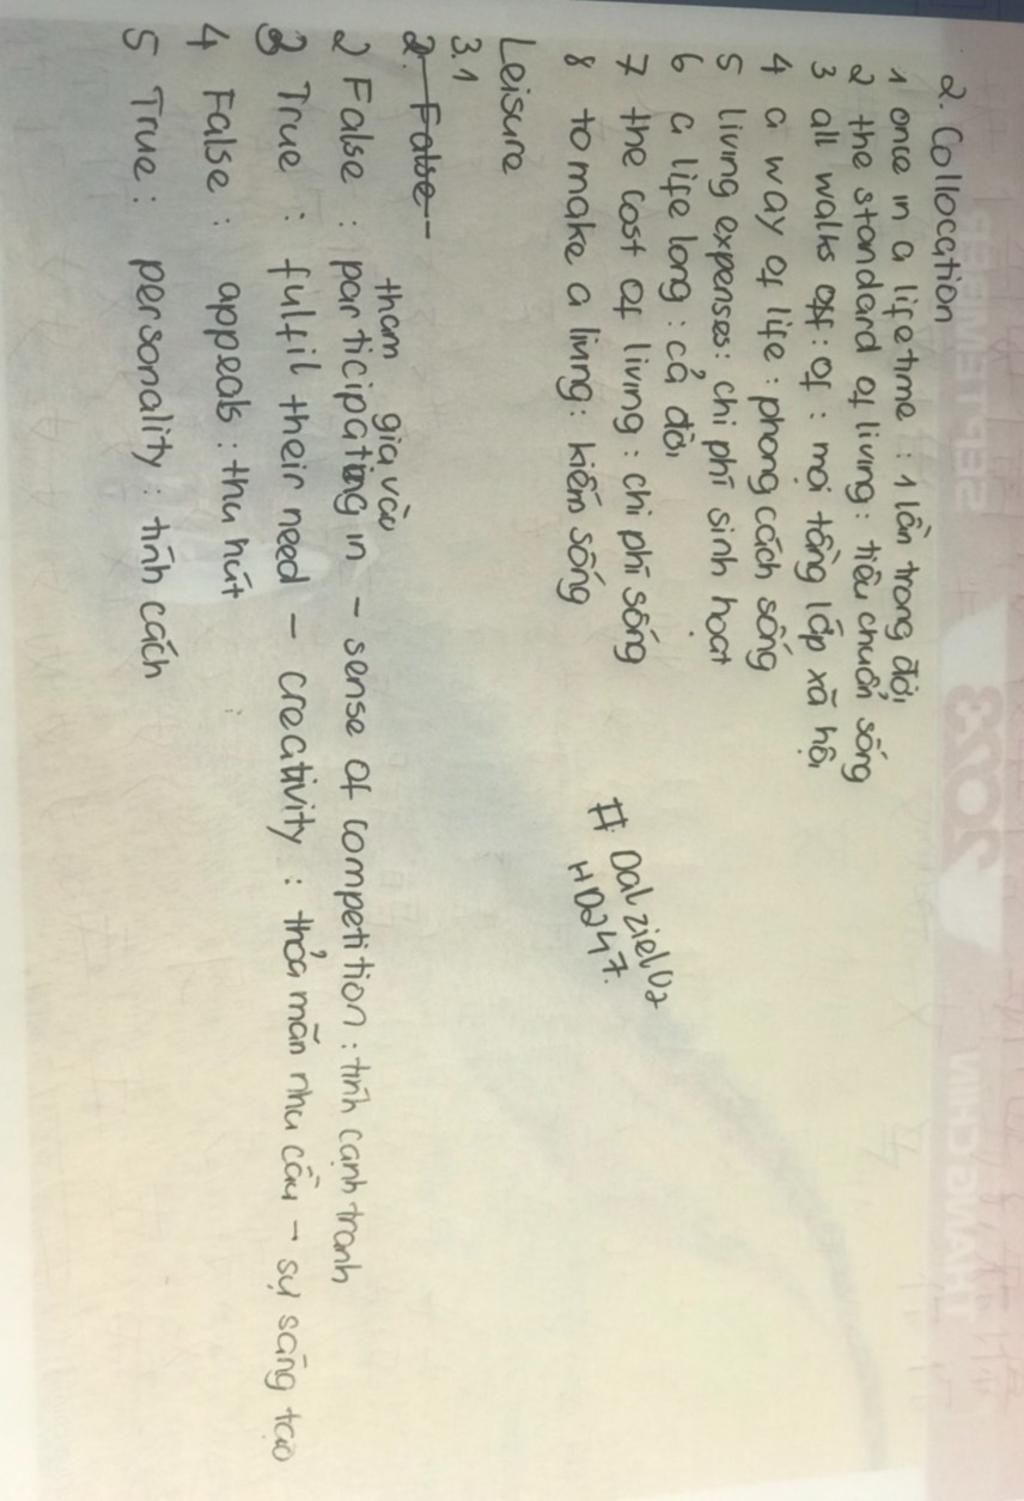 2. Collocation
1 once in a lifetime : 1 lần trong đời
2 the standard of living : tiêu chuẩn sống
3 all walks off : of : mọi tầng lớp xã hội
4 a way of life : phong cách sống
5 living expenses : chi phí sinh hoạt
6 a life long : cả đời
7 the cost of living : chi phí sống
8 to make a living : kiếm sống
# Dalziel02
HD247.
Leisure
3.1
2. False
tham gia vào
2 False : participating in - sense of competition : tính cạnh tranh
3 True : fulfil their need - creativity : thỏa mãn nhu cầu - sự sáng tạo
4 False : appeals : thu hút
5 True : personality : tính cách
SEPTEMBER
2023
THANG CHIN